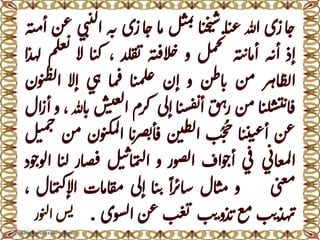 جازى الله عنا شيخنا بمثل ما جازى به النبي عن أمته
إذ أنه أمانته تحمل و خلافته تقلد ، كنا لا نعلم لهذا
الظاهر من باطن و إن علمنا فما هي إلا الظنون
فانتشلنا من رهق أنفسنا إلى كرم العيش بالله ، و أزال
عن أعيننا حُجُب الطين فأبصرنا المكنون من جميل
المعاني في أجواف الصور و التماثيل فصار لنا الوجود
معنى و مثال سائراً بنا إلى مقامات الإكتمال ،
تهذيب مع تذويب تغب عن السوى . يس النور